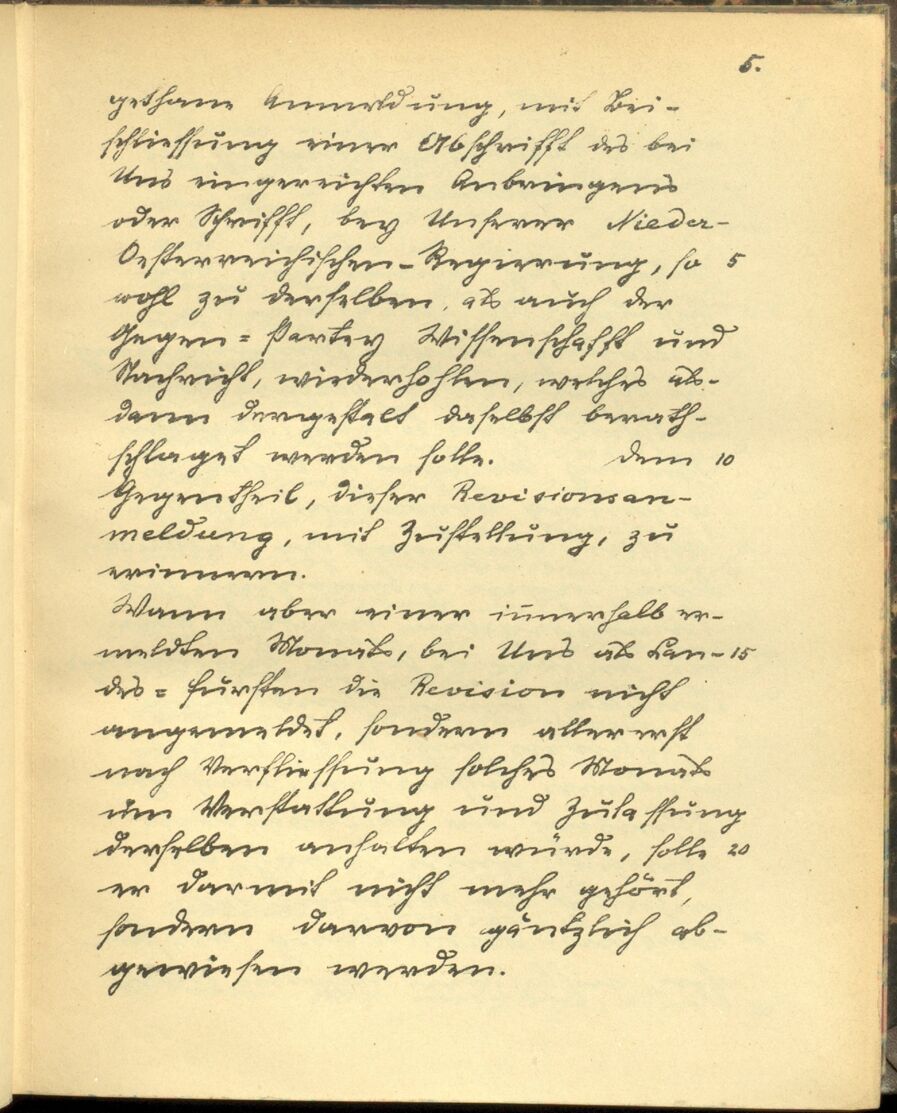 5.
gethane Anmeldung, mit Bei-
schliessung einer Abschrifft des bei
Uns eingereichten Anbringens
oder Schrifft, bey Unserer Nieder-
Oesterreichischen-Regierung, so 5
wohl zu derselben, als auch der
Gegen=Partey Wissenschafft und
Nachricht, wiederhohlen, welches als-
dann dergestalt daselbst berath-
schlaget werden solle. dem 10
Gegentheil, dieser Revisionsan-
meldung, mit Zustellung, zu
erinnern.
Wann aber einer innerhalb er-
meldten Monats, bei Uns als Lan- 15
des=fürsten die Revision nicht
angemeldet, sondern allererst
nach Verfliessung solches Monats
um Verstattung und Zulassung
derselben anhalten würde, solle 20
er darmit nicht mehr gehört,
sondern darvon gäntzlich ab-
gewiesen werden.